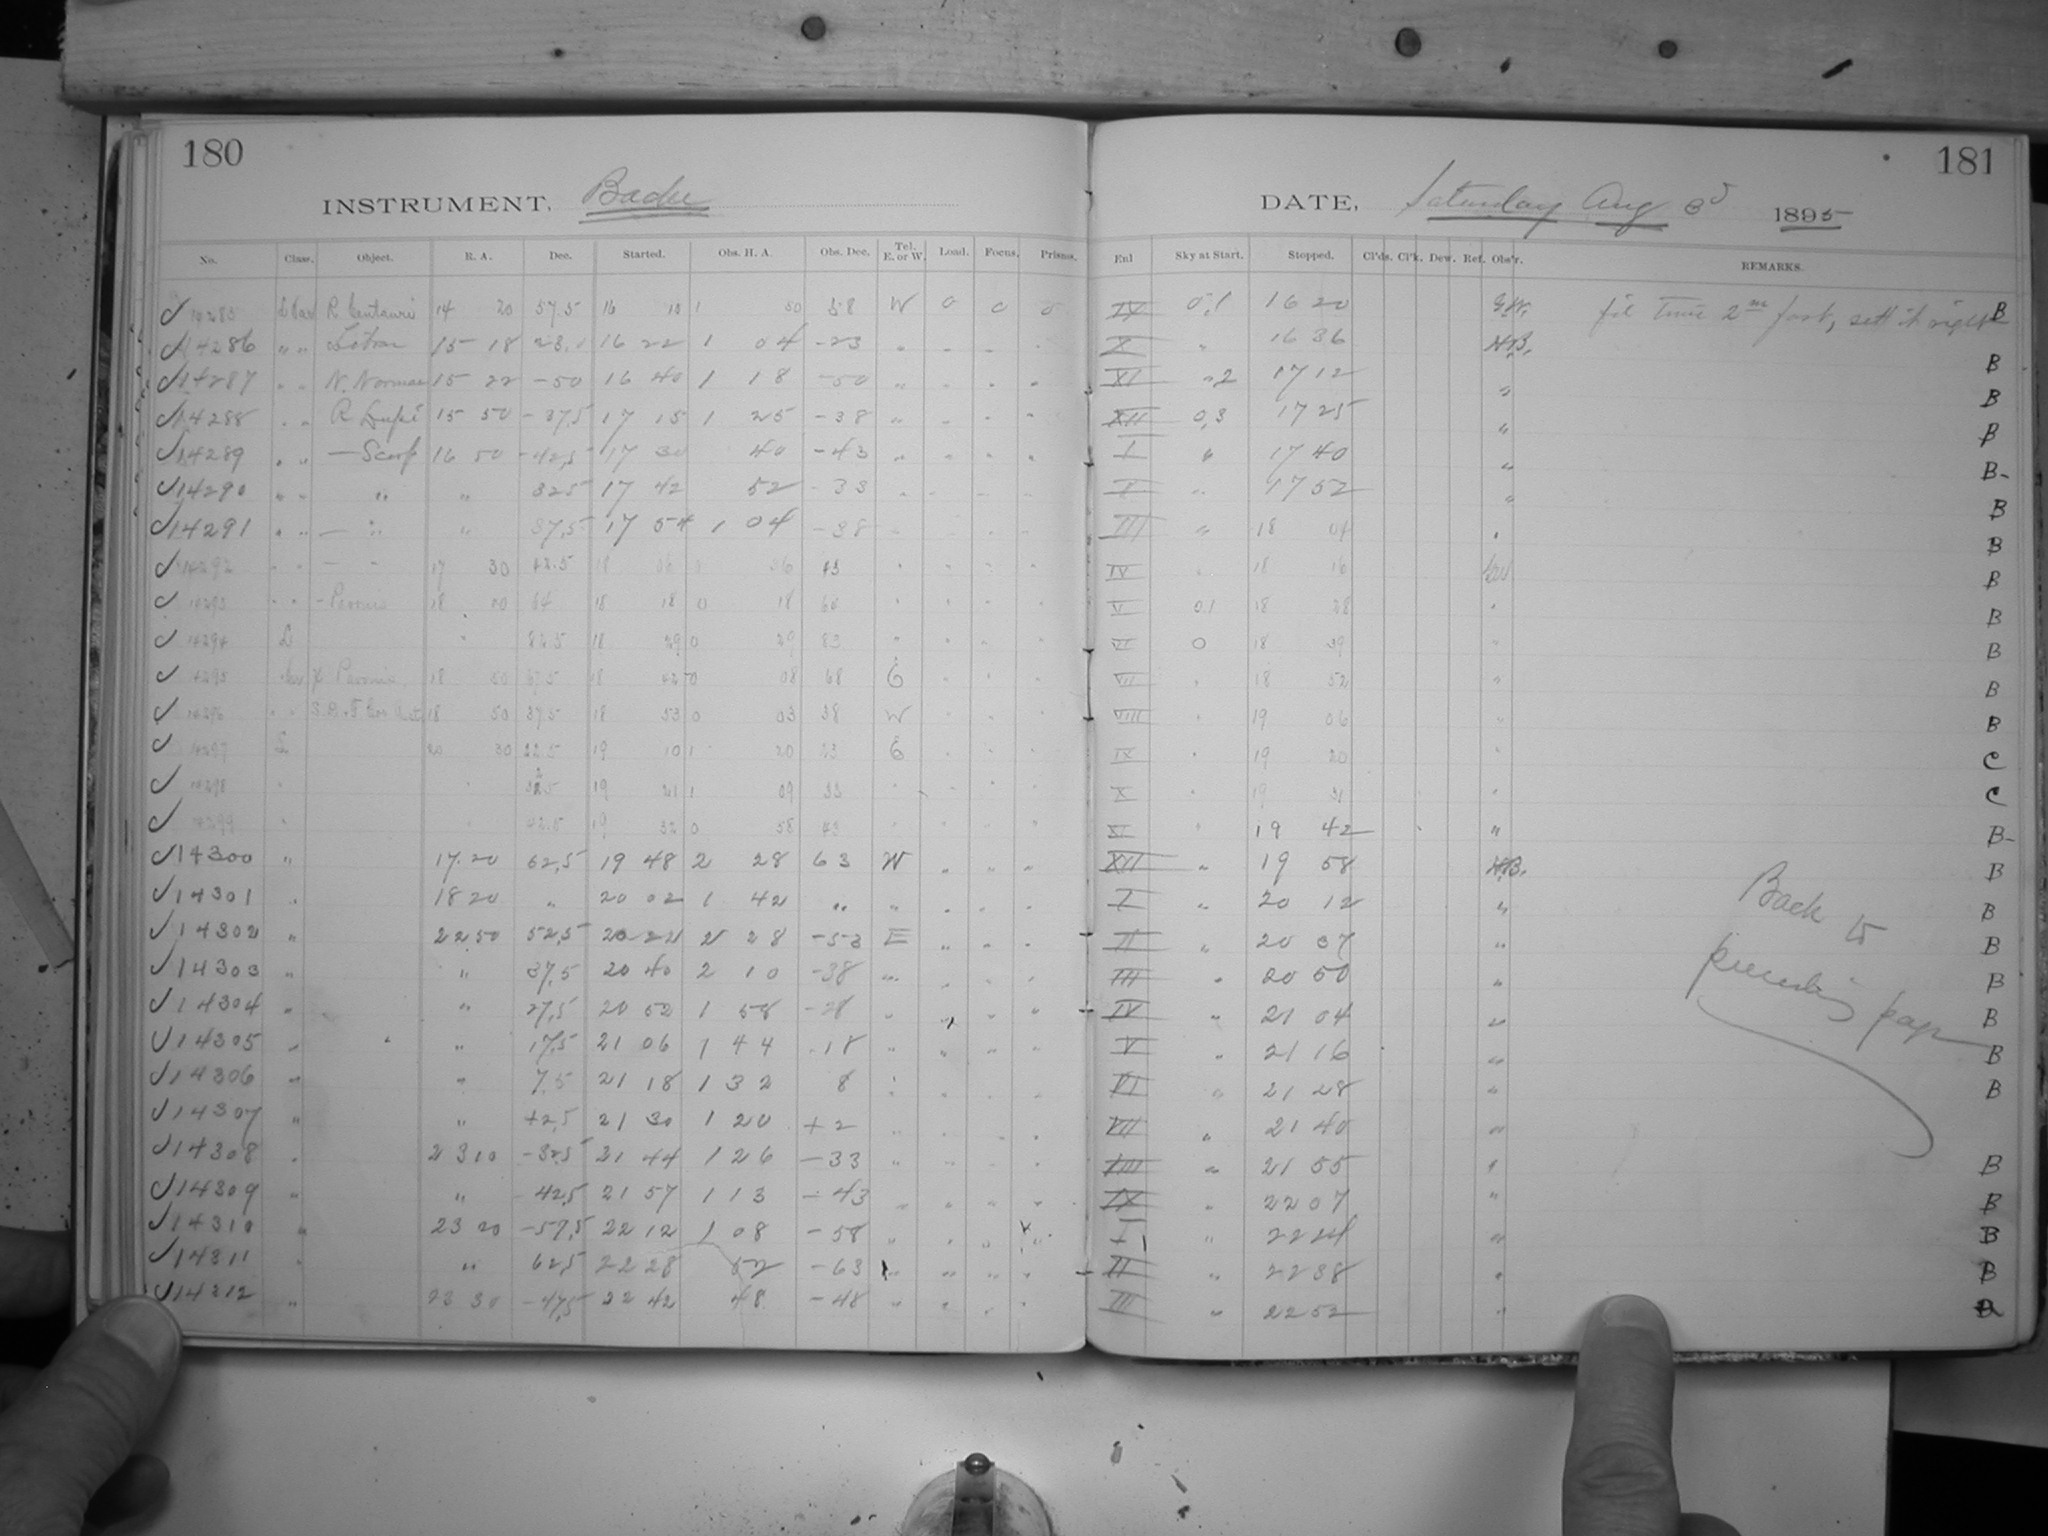 180
INSTRUMENT, Bache
No. Class. Object. R. A. Dec. Started. Obs. H. A. Obs. Dec. Tel. E. or W. Load. Focus. Prisms.
14285 R Centauri 14 20 57.5 16 10 1 50 58 W 0 0 0
14286 " " Librae 15 18 16 22 1 04 -23 "
14287 " " 15 22 -50 16 40 1 18 -50 " " " "
14288 " " R Lupi 15 50 -37,5 17 15 1 25 -38 " " " "
14289 " " — Scorp 16 50 -42,5 17 30 40 -43 " " " "
14290 " " " " 325 17 42 52 -33 " " " "
14291 " " — " " 37,5 17 54 1 04 -38
14292 " " — " 17 30 42.5 18 43 " " " "
14293 " " - Pavonis 18 00 64 18 18 0 18 60 " " " "
14294 L " 82.5 18 29 0 29 83 " " " "
14295 Pavonis 18 50 67.5 18 42 0 08 68 E " " "
14296 " " 18 50 37.5 18 53 0 03 38 W " " "
14297 L 20 30 22.5 19 10 1 20 23 E " " "
14298 " " 19 21 1 09 33 " " " "
14299 " " 42.5 19 32 0 58 43 " " " "
14300 " 17.20 62,5 19 48 2 28 63 W " " "
14301 " 18 20 " 20 02 1 42 " " " " "
14302 " 22 50 52,5 20 22 2 28 -53 E " " "
14303 " " 37,5 20 40 2 10 -38 " " " "
14304 " " 27,5 20 52 1 58 -28 " " " "
14305 " " 17,5 21 06 1 44 -18 " " " "
14306 " " 7.5 21 18 1 32 8 " " " "
14307 " " +2,5 21 30 1 20 +2 " " " "
14308 " 23 10 -32,5 21 44 1 26 -33 " " " "
14309 " " -42,5 21 57 1 13 -43 " " " "
14310 " 23 20 -57,5 22 12 1 08 -58 " " " "
14311 " " 62,5 22 28 52 -63 " " " "
14312 " 23 30 -47,5 22 42 48 -48 " " " "
181
DATE, Saturday Aug 3d 1895
Enl Sky at Start. Stopped. Cl'ds. Cl'k. Dew. Ref. Obs'r. REMARKS.
IX 0,1 16 20 sid time 2m fast, set it right B
X " 16 36 H.B. B
XI " 2 17 12 " B
XII 0,3 17 25 " B
I " 17 40 " B-
II " 17 52 " B
III " 18 04 " B
IV " 18 16 B
V 0.1 18 28 " B
VI 0 18 39 " B
VII " 18 52 " B
VIII " 19 06 " B
IX " 19 20 " C
X " 19 31 " C
XI " 19 42 " B-
XII " 19 58 H.B. B
I " 20 12 " B
II " 20 37 " B
III " 20 50 " B
IV " 21 04 " B
V " 21 16 " B
VI " 21 28 " B
VII " 21 40 "
VIII " 21 55 " B
IX " 22 07 " B
I " 22 24 " B
II " 22 38 " B
III " 22 52 "
Back to
preceding page